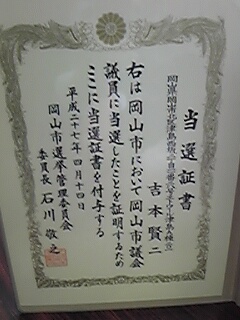 当選証書
吉本賢二
右は岡山市において岡山市議会
議員に当選したことを証明するため
ここに当選証書を付与する
平成二十七年四月十四日
岡山市選挙管理委員会
委員長 石川敬之